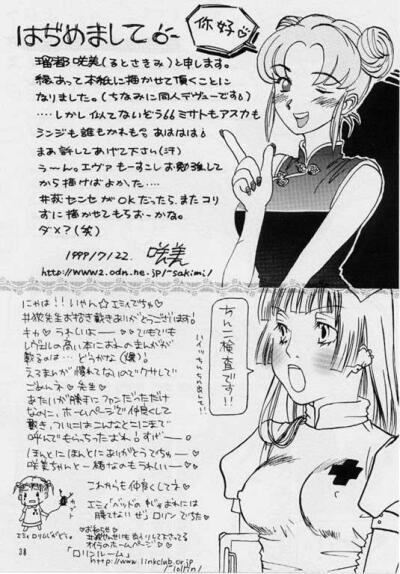 はぢめまして
你好♡
瑠都 咲美(るとさきみ)と申します。
縁あって本紙に描かせて頂くことに
なりました。(ちなみに同人デヴューです♂)
しかし似てないぞう66 ミサトもアスカも
シンジも誰もかれも。あははは♂
まあ許してあげて下さい(汗)
う〜ん。エヴァもーすこしお勉強して
から描けばよかった....
井荻センセがOKだったら、またコリ
ずに描かせてもらお〜かな。
ダメ?(笑)
1999/7/22. 咲美
http://www2.odn.ne.jp/~sakimi/
にゃは!!いやん☆エミィでちゅ♡
あんこ検査です!!
レヴェルの高い本におれのまんがが
載るのは… どうかな(爆)。
ごめんネ♡先生♡
あたいが勝手にファンだっただけ
なのに、ホームページで仲良くして
戴き、ついにはこんなとこにまで
呼んでもらっちゃおれ!すげ——。
ほんとにほんとにありがとうでちゅー
咲美ちゃんと一緒なのもうれしい—♡
これからも仲良くしてネ♡
38
「ロリンルーム」